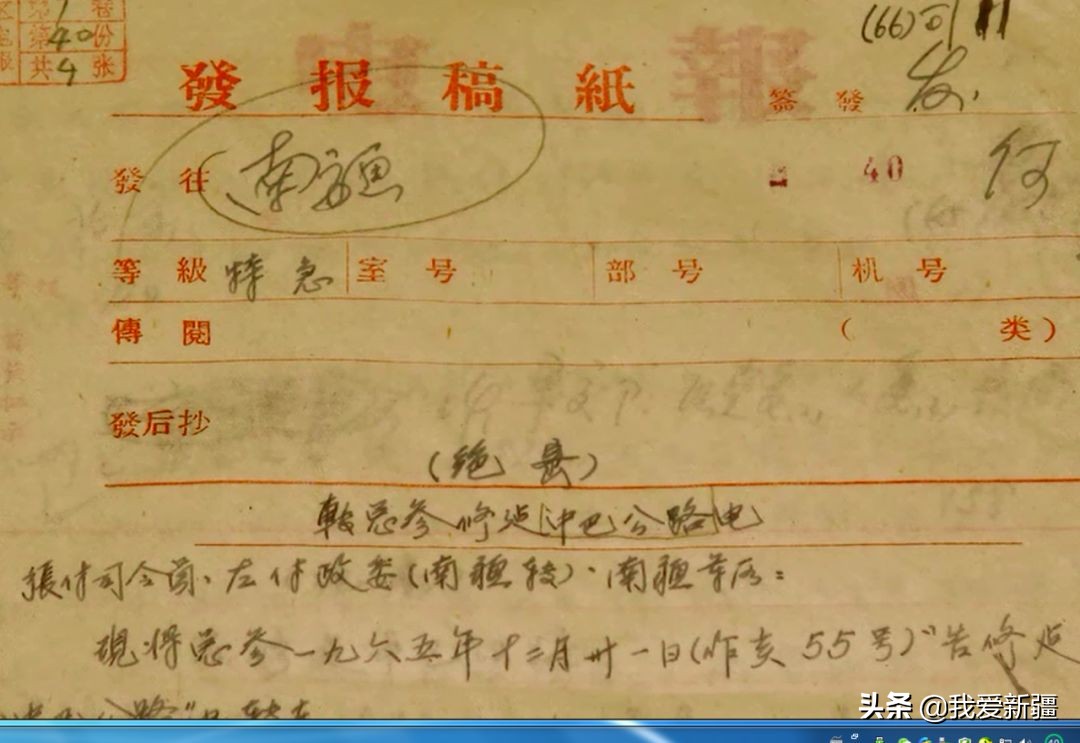 第1番
第40份
共4张
(66)司11
發报稿紙
簽發 发.
發往 南疆
40 何
等級 特急 室号 部号 机号
傳閱 ( 类)
發后抄
(绝县)
轉总参修 中巴公路电
張付司令員、左付政委(南疆轉)、南疆軍区:
現将总参一九六五年十二月卅一日(作亥55号)"告修
头条 @我爱新疆